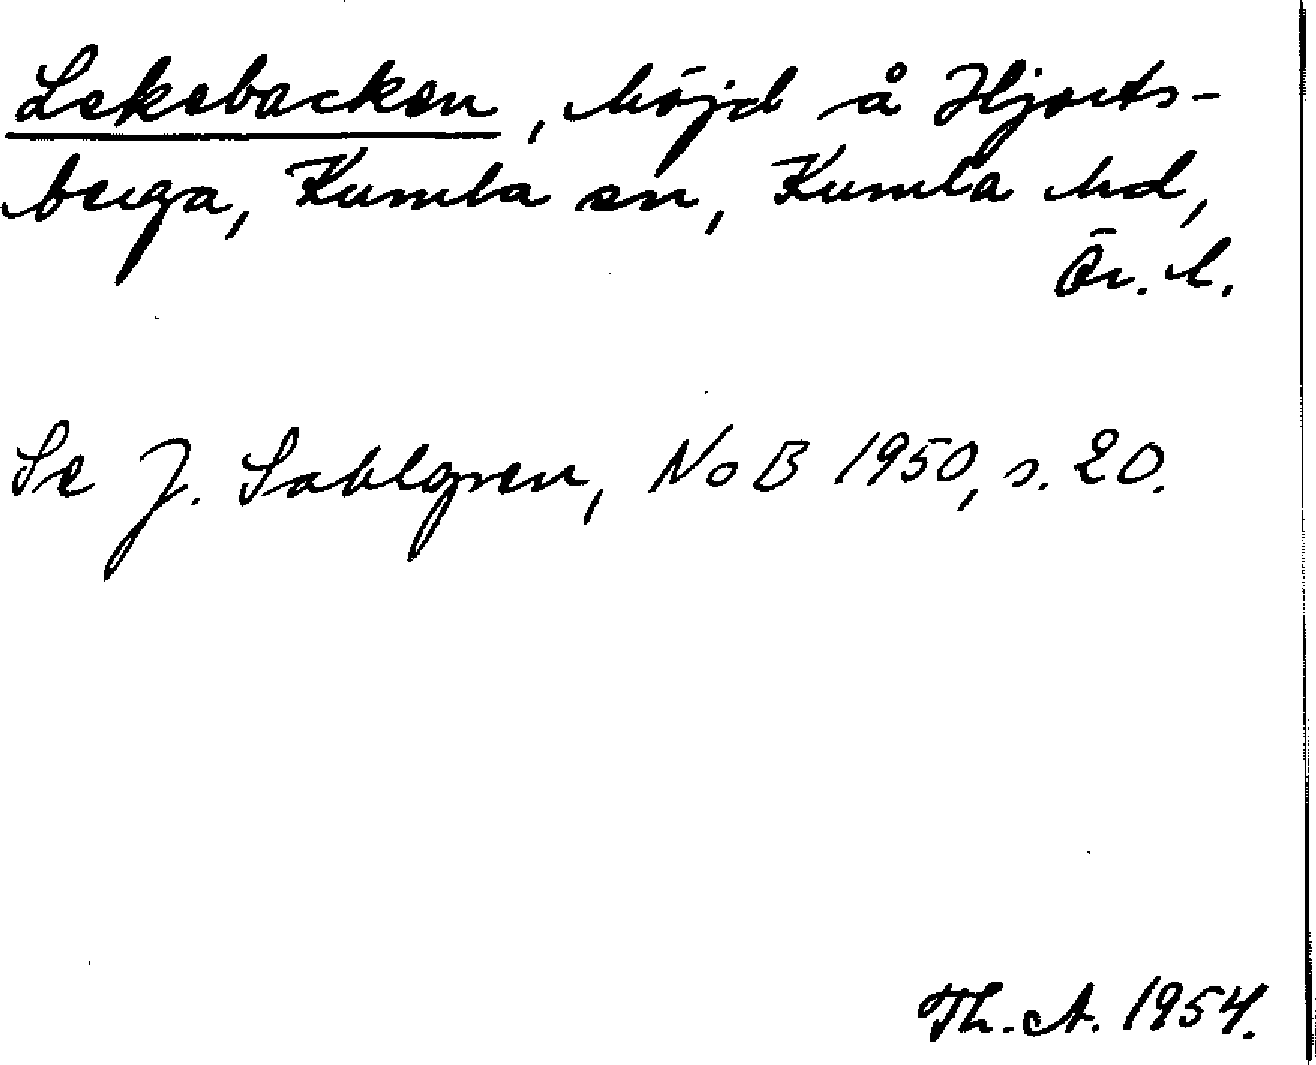 Lekebacken, höjd å Hjorts-
berga, Kumla sn, Kumla hd,
Ör. l.
Se J. Sahlgren, NoB 1950, s. 20.
Th. A. 1954.